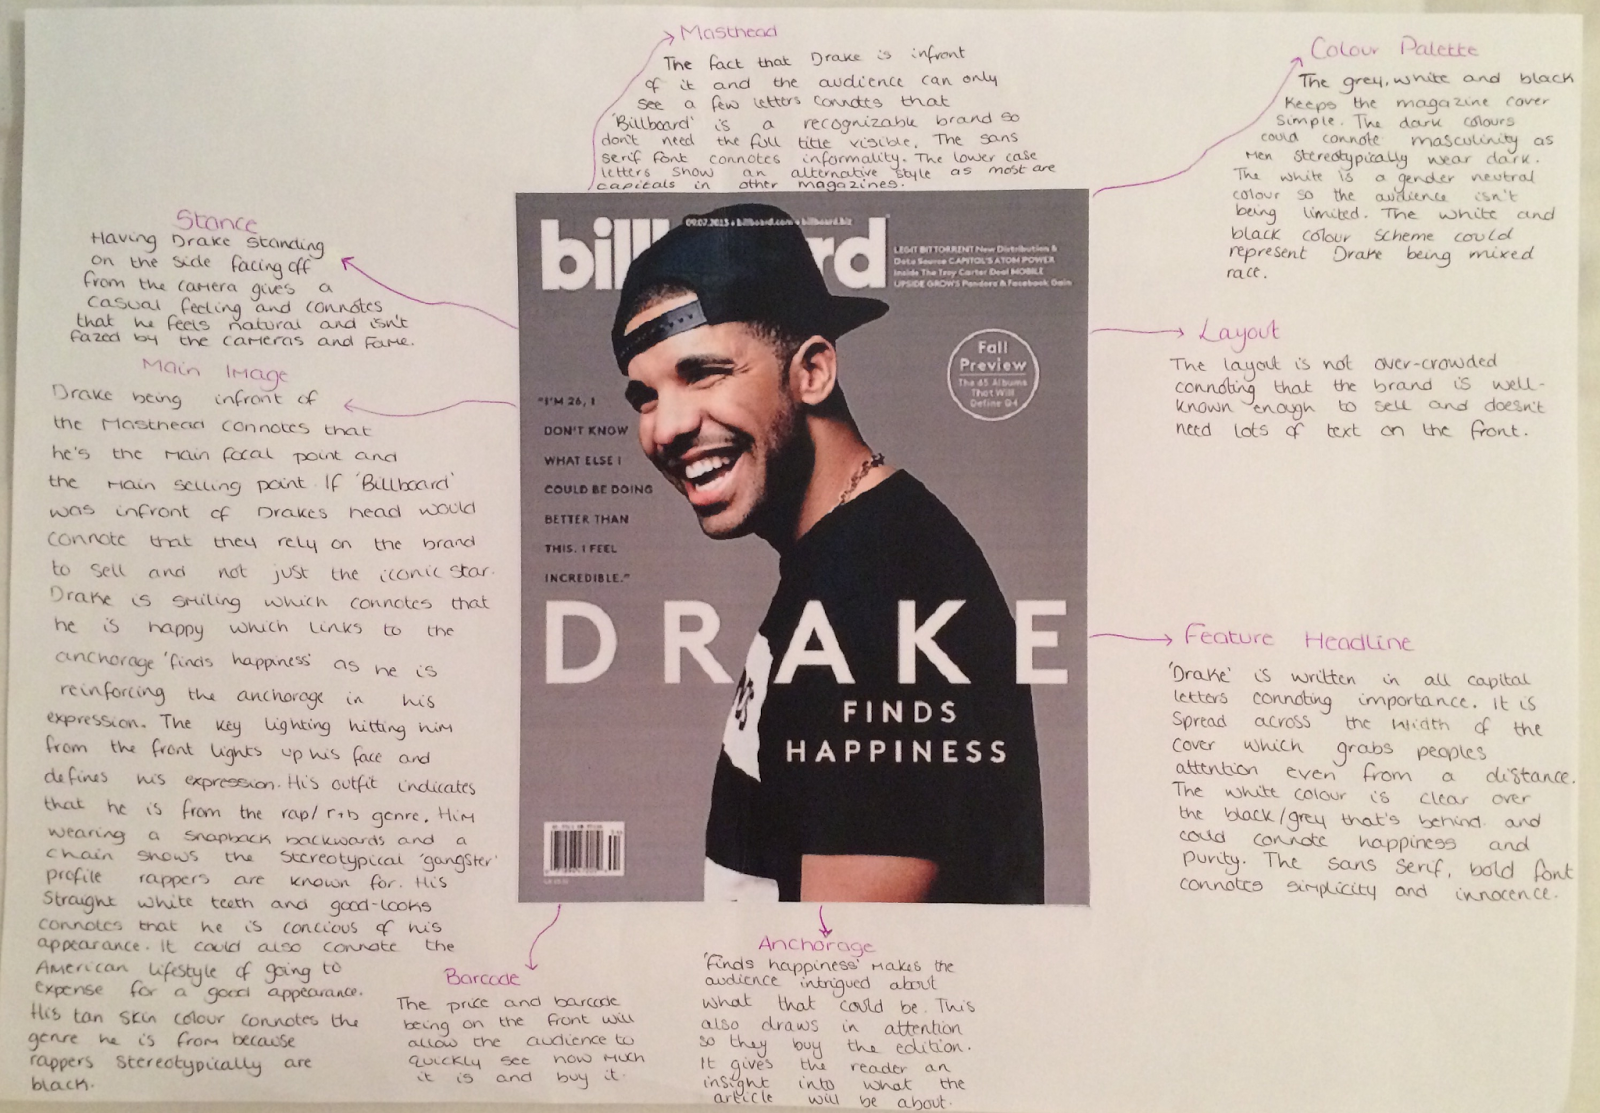 Masthead
The fact that Drake is infront
of it and the audience can only
see a few letters connotes that
'Billboard' is a recognizable brand so
don't need the full title visible. The sans
serif font connotes informality. The lower case
letters show an alternative style as most are
capitals in other magazines.
Colour Palette
The grey, white and black
keeps the magazine cover
simple. The dark colours
could connote masculinity as
men stereotypically wear dark.
The white is a gender neutral
colour so the audience isn't
being limited. The white and
black colour scheme could
represent Drake being mixed
race.
Stance
Having Drake standing
on the side facing off
from the camera gives a
casual feeling and connotes
that he feels natural and isn't
fazed by the cameras and fame.
Main Image
Drake being infront of
the Masthead connotes that
he's the main focal point and
the main selling point. If 'Billboard'
was infront of Drakes head would
connote that they rely on the brand
to sell and not just the iconic star.
Drake is smiling which connotes that
he is happy which links to the
anchorage 'finds happiness' as he is
reinforcing the anchorage in his
expression. The key lighting hitting him
from the front lights up his face and
defines his expression. His outfit indicates
that he is from the rap/r+b genre. Him
wearing a snapback backwards and a
chain shows the stereotypical 'gangster'
profile rappers are known for. His
straight white teeth and good-looks
connotes that he is concious of his
appearance. It could also connote the
American lifestyle of going to
expense for a good appearance.
His tan skin colour connotes the
genre he is from because
rappers stereotypically are
black.
billboard
09.07.2013 • billboard.com • billboard.biz
LEGIT BITTORRENT New Distribution &
Data Source CAPITOL'S ATOM POWER
Inside The Troy Carter Deal MOBILE
UPSIDE GROWS Pandora & Facebook Gain
Fall
Preview
The 65 Albums
That Will
Define Q4
"I'M 26, I
DON'T KNOW
WHAT ELSE I
COULD BE DOING
BETTER THAN
THIS. I FEEL
INCREDIBLE."
DRAKE
FINDS
HAPPINESS
Layout
The layout is not over-crowded
connoting that the brand is well-
known enough to sell and doesn't
need lots of text on the front.
Feature Headline
'Drake' is written in all capital
letters connoting importance. It is
spread across the width of the
cover which grabs peoples
attention even from a distance.
The white colour is clear over
the black/grey that's behind and
could connote happiness and
purity. The sans serif, bold font
connotes simplicity and innocence.
Barcode
The price and barcode
being on the front will
allow the audience to
quickly see how much
it is and buy it.
Anchorage
'Finds happiness' makes the
audience intrigued about
what that could be. This
also draws in attention
so they buy the edition.
It gives the reader an
insight into what the
article will be about.